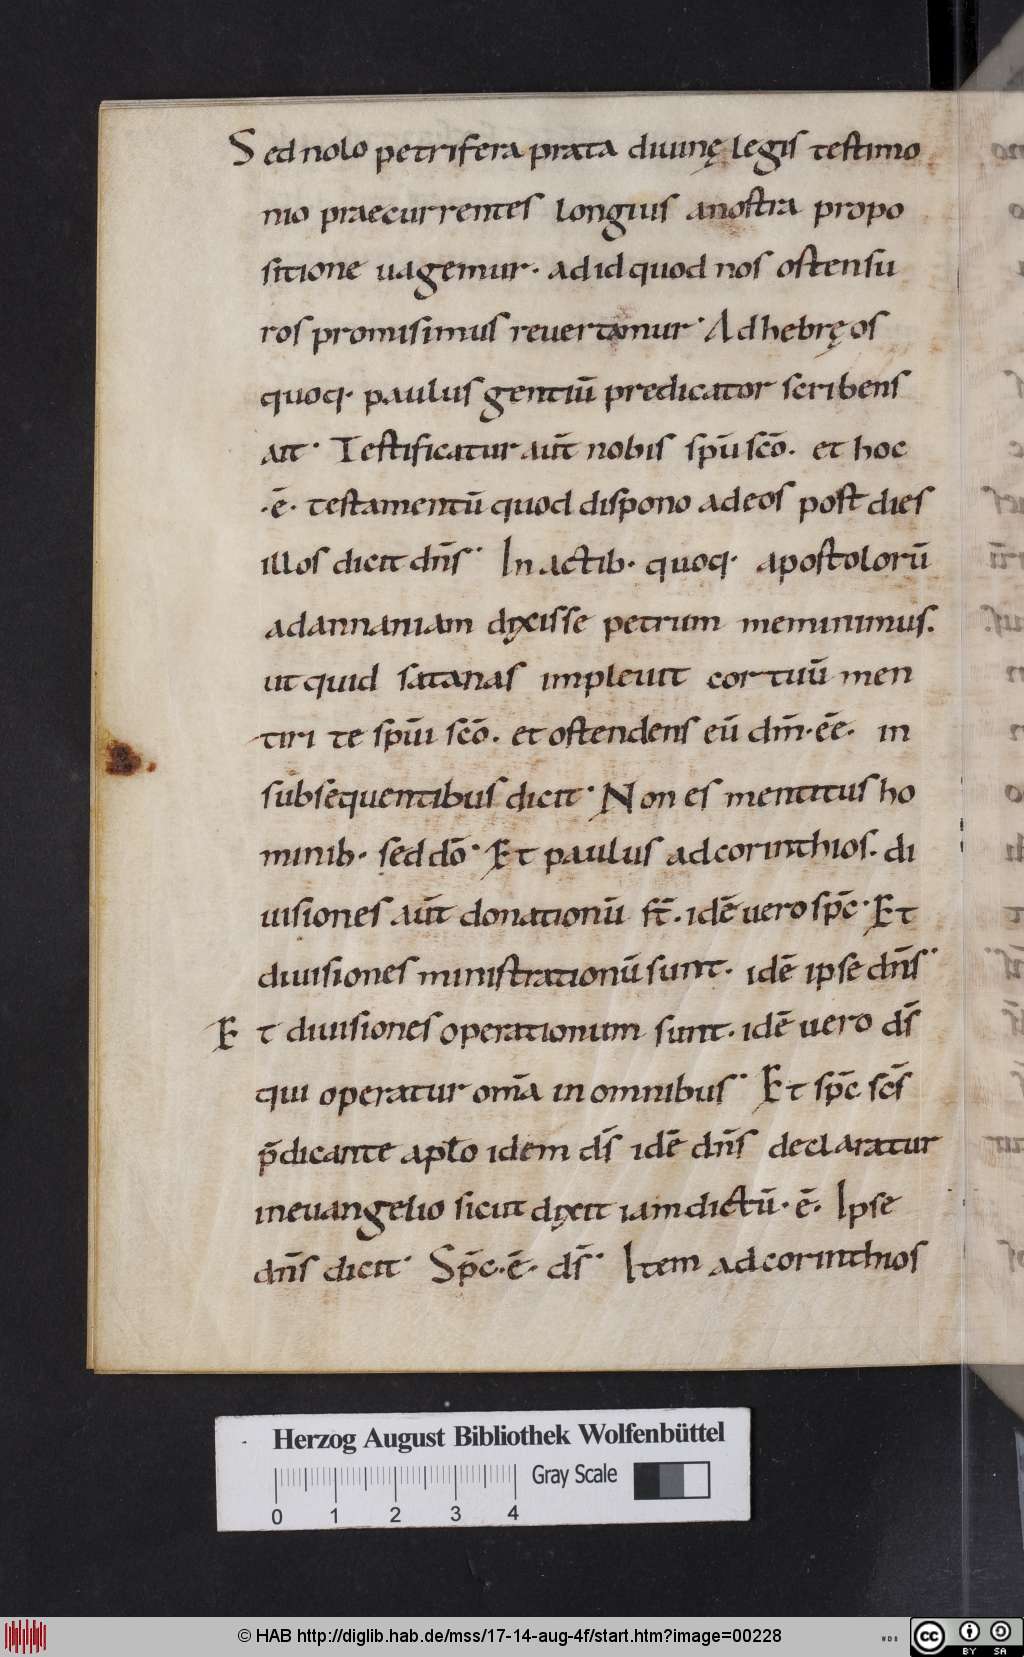 Sed nolo petrifera prata diuinę legis testimo
nio praecurrentes longius anostra propo
sitione uagemur· adid quod nos ostensu
ros promisimus reuertamur· Ad hebręos
quoq· paulus gentiū predicator scribens
ait· Testificatur aūt nobis sp̄u sc̄o· et hoc
·ē· testamentū quod dispono adeos post dies
illos dicit dn̄s· In actib· quoq· apostolorū
adannaniam dyxisse petrum meminimus.
ut quid satanas impleuit cor tuū men
tiri te sp̄ui sc̄o. et ostendens eū dm̄·eē· in
subsequentibus dicit· Non es mentitus ho
minib· sed dō· Et paulus adcorinthios. di
uisiones aūt donationū st̄. idē uero sp̄c· Et
diuisiones ministrationū sunt· idē ipse dn̄s
Et diuisiones operationum sunt· idē uero ds̄
qui operatur om̄a in omnibus Et sp̄c sc̄s
p̄dicante apl̄o idem ds̄ idē dn̄s declaratur
ineuangelio sicut dyxit iam dictū· ē. Ipse
dn̄s dicit· Sp̄c·ē· ds̄· Item adcorinthios
Herzog August Bibliothek Wolfenbüttel
Gray Scale
0 1 2 3 4
© HAB http://diglib.hab.de/mss/17-14-aug-4f/start.htm?image=00228
WDB
cc BY SA